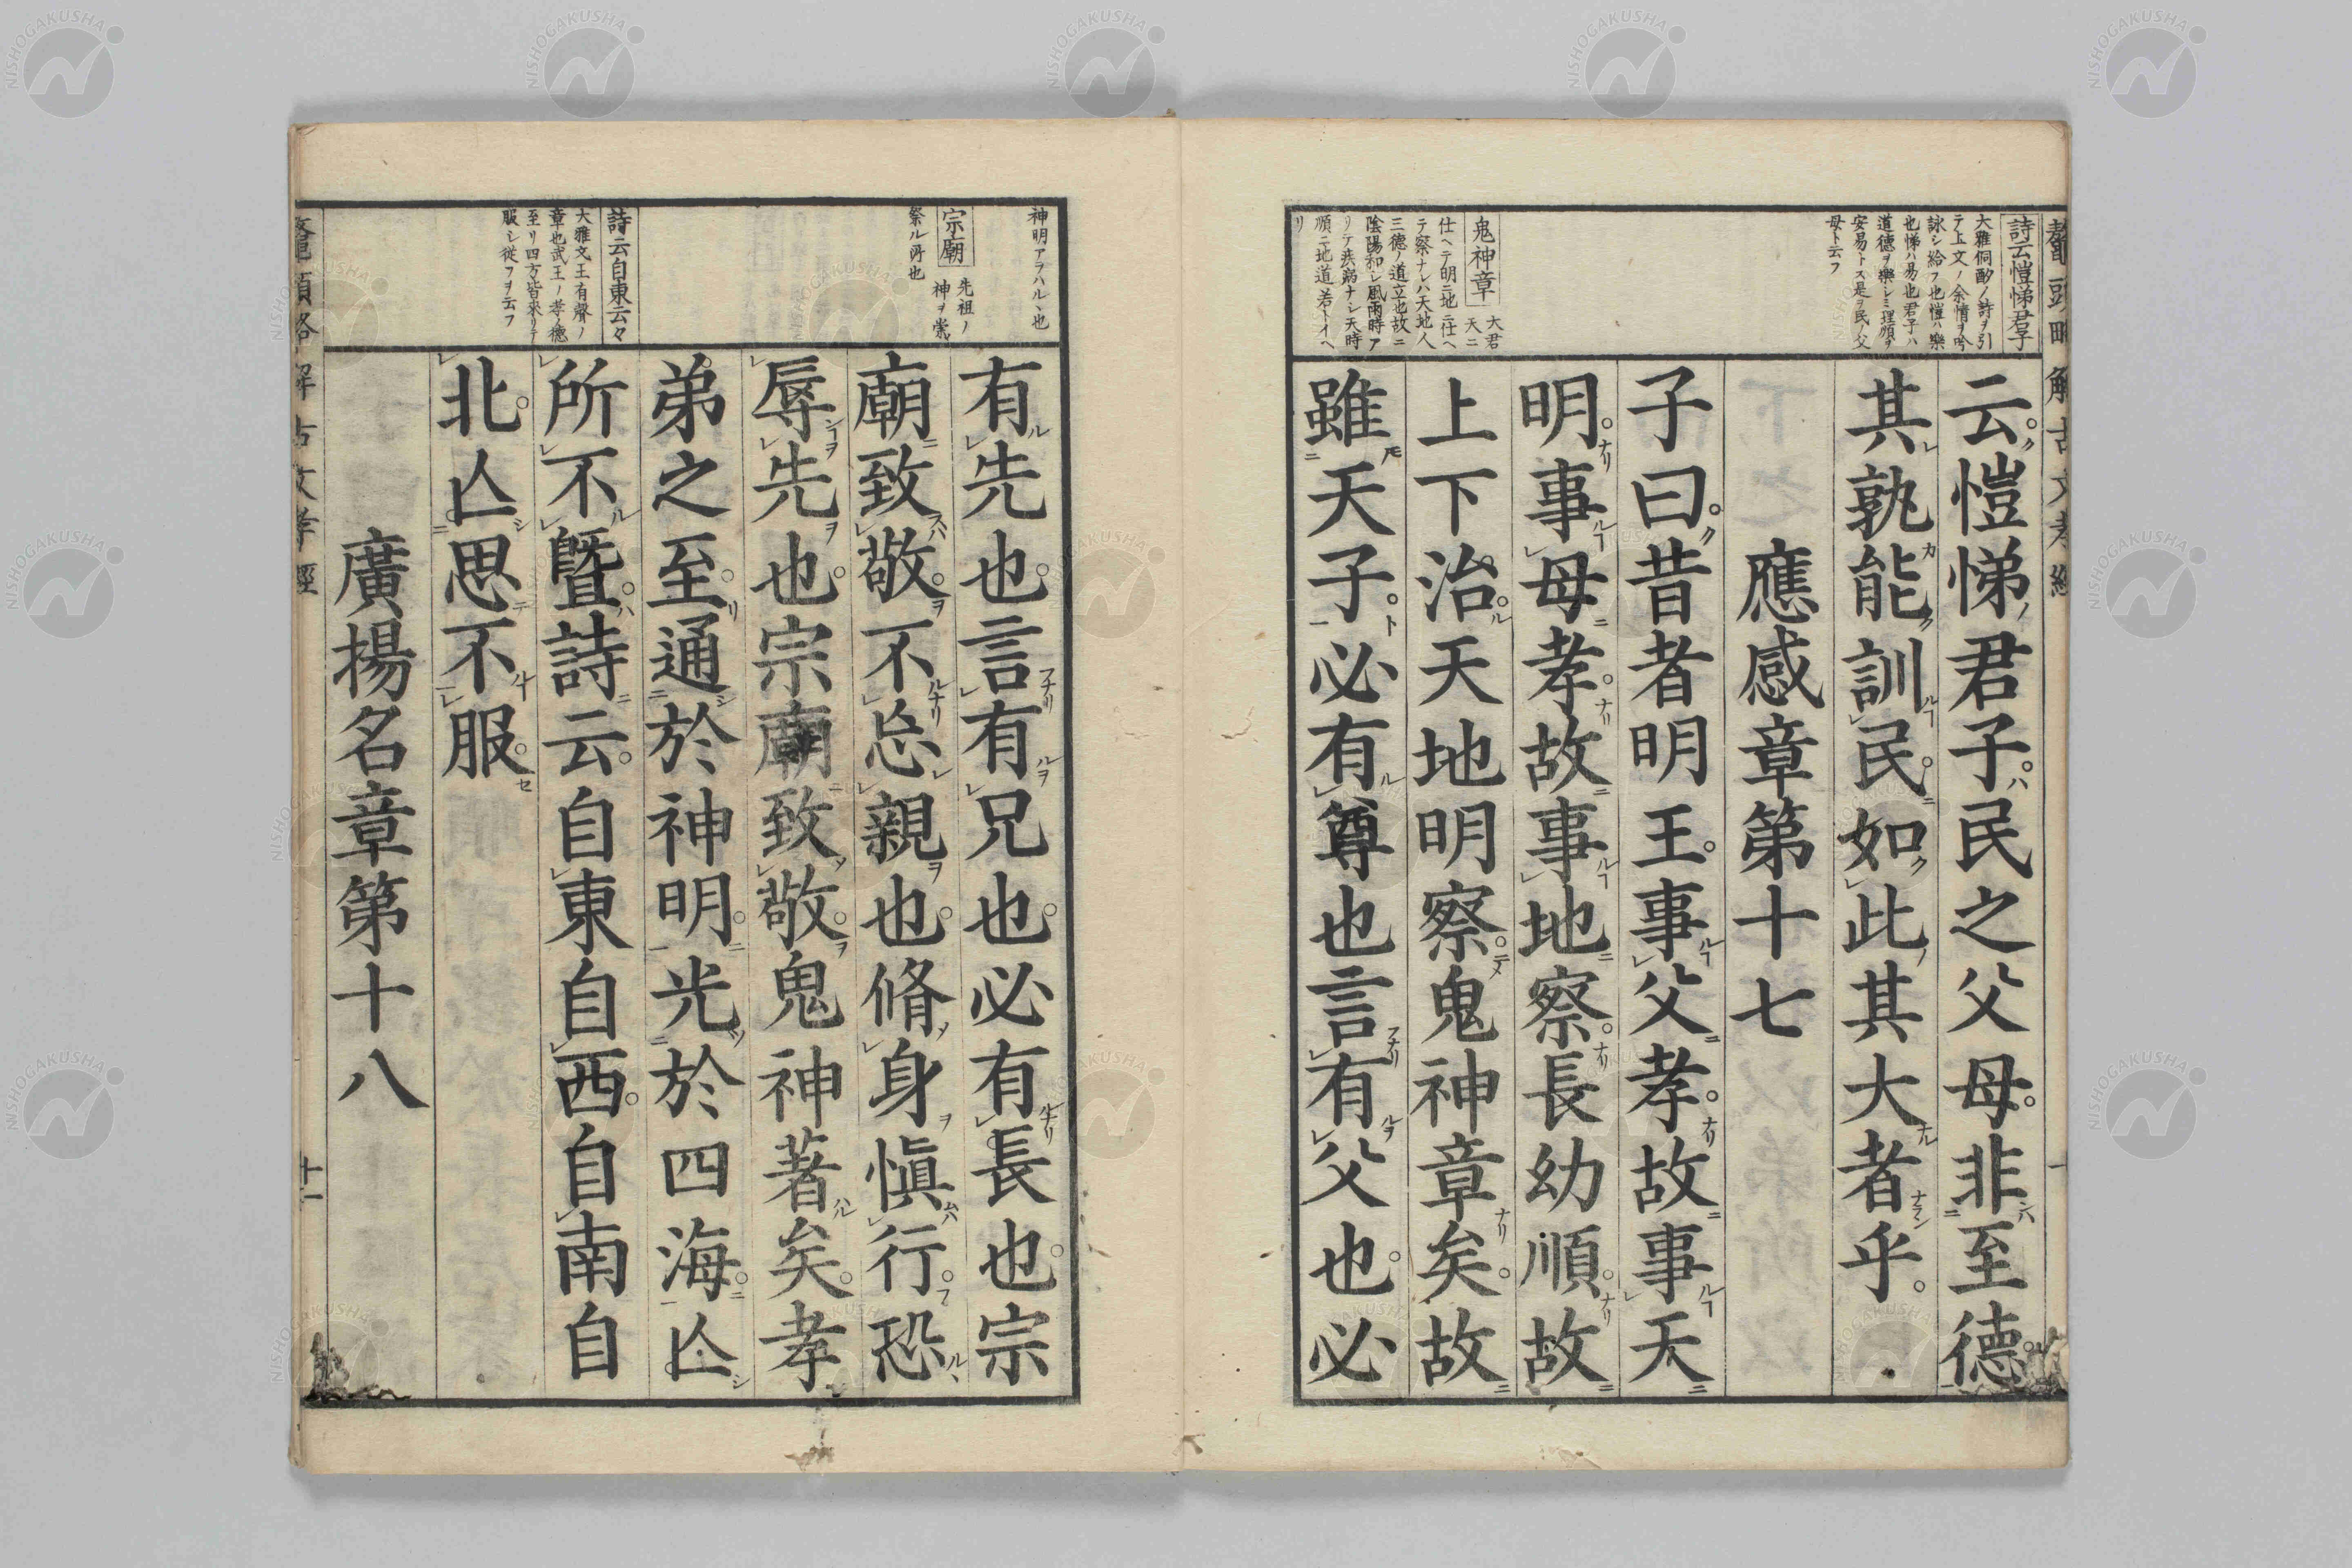 詩云愷悌君子
大雅泂酌ノ詩ヲ引
テ上文ノ余情ヲ吟
詠シ給フ也愷ハ樂
也悌ハ易也君子ハ
道德ヲ樂シミ理順ヲ
安易トス是ヲ民ノ父
母ト云フ
鬼神章 大君
天ニ
仕ヘテ明ニ地ニ仕ヘ
テ察ナレハ天地人
三德ノ道立也故ニ
陰陽和シ風雨時ア
リテ疾病ナシ天時
順ニ地道若トイヘ
リ
云愷悌君子民之父母非至德
其孰能訓民如此其大者乎
應感章第十七
子曰昔者明王事父孝故事天
明事母孝故事地察長幼順故
上下治天地明察鬼神章矣故
雖天子必有尊也言有父也必
神明アラハルヽ也
宗廟 先祖ノ
神ヲ
祭ル所也
詩云自東云々
大雅文王有聲ノ
章也武王ノ孝德
至リ四方皆來リテ
服シ從フヲ云フ
有先也言有兄也必有長也宗
廟致敬不忘親也脩身愼行恐
辱先也宗廟致敬鬼神著矣孝
弟之至通於神明光於四海亾
所不曁詩云自東自西自南自
北亾思不服
廣揚名章第十八
十一